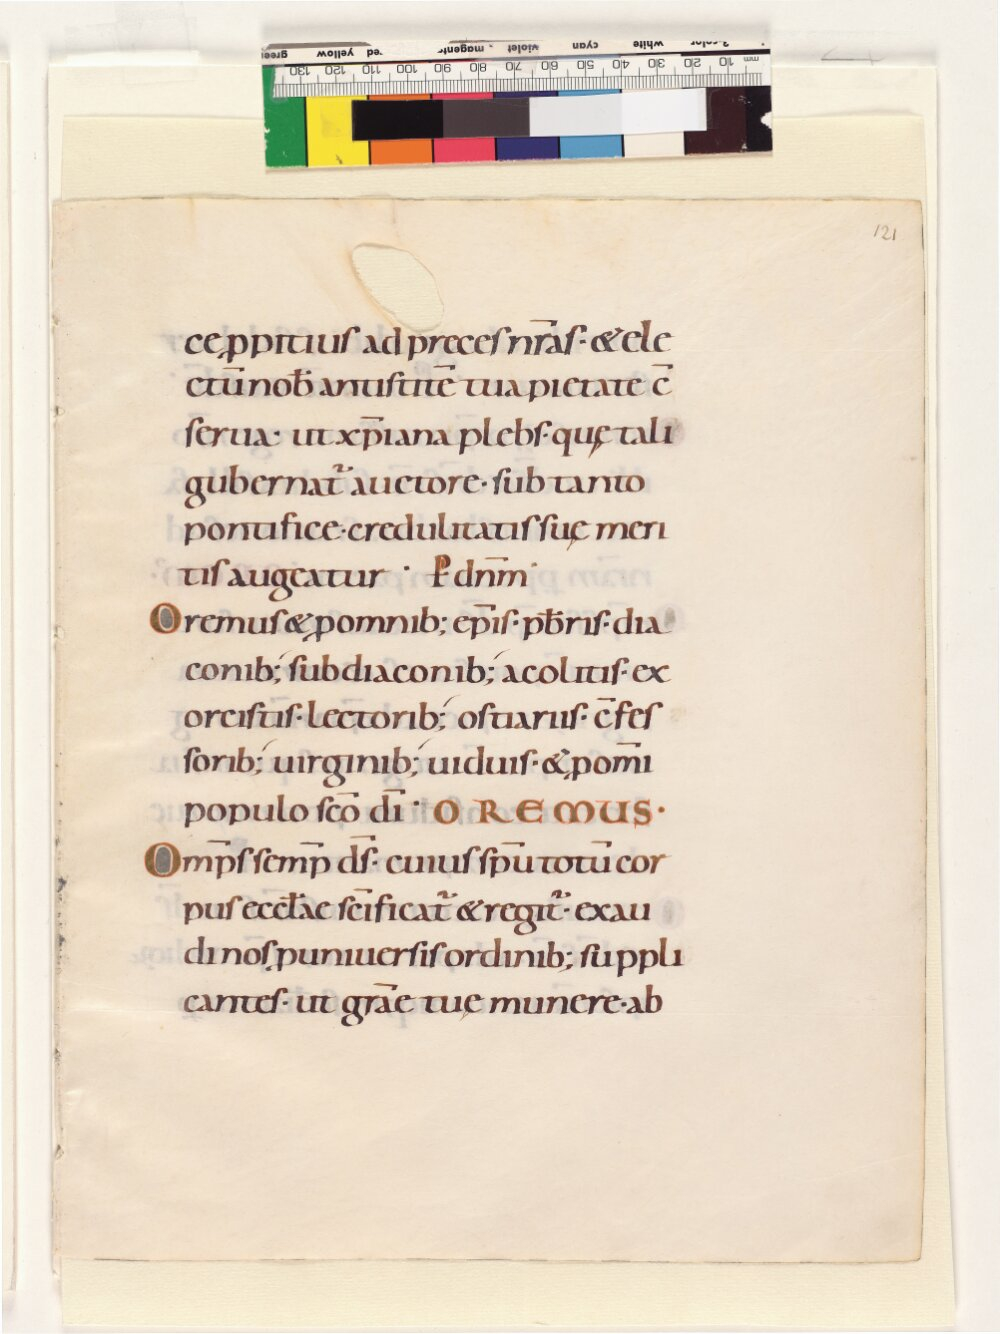 121
ce ꝓpitius ad preces nr̄as· & ele
ctū nob̄ antistitē tua pietate c̄
serua· ut xp̄iana plebs· quę tali
gubernat᷑ auctore· sub tanto
pontifice· credulitatis suę meri
tis augeatur · P dn̄m·
Oremus & ꝓ omnib; ep̄is· pb̄ris· dia
conib; subdiaconib; acolitis· ex
orcistis· lectorib; ostiariis· c̄fes
sorib; uirginib; uiduis· & ꝓ om̄i
populo sc̄o dī · OREMUS·
Omp̄s semp̄ ds̄· cuius sp̄u totū cor
pus eccl̄ae sc̄ificat᷑ & regit᷑· exau
di nos ꝓ uniuersis ordinib; suppli
cantes· ut gr̄ae tuę munere· ab